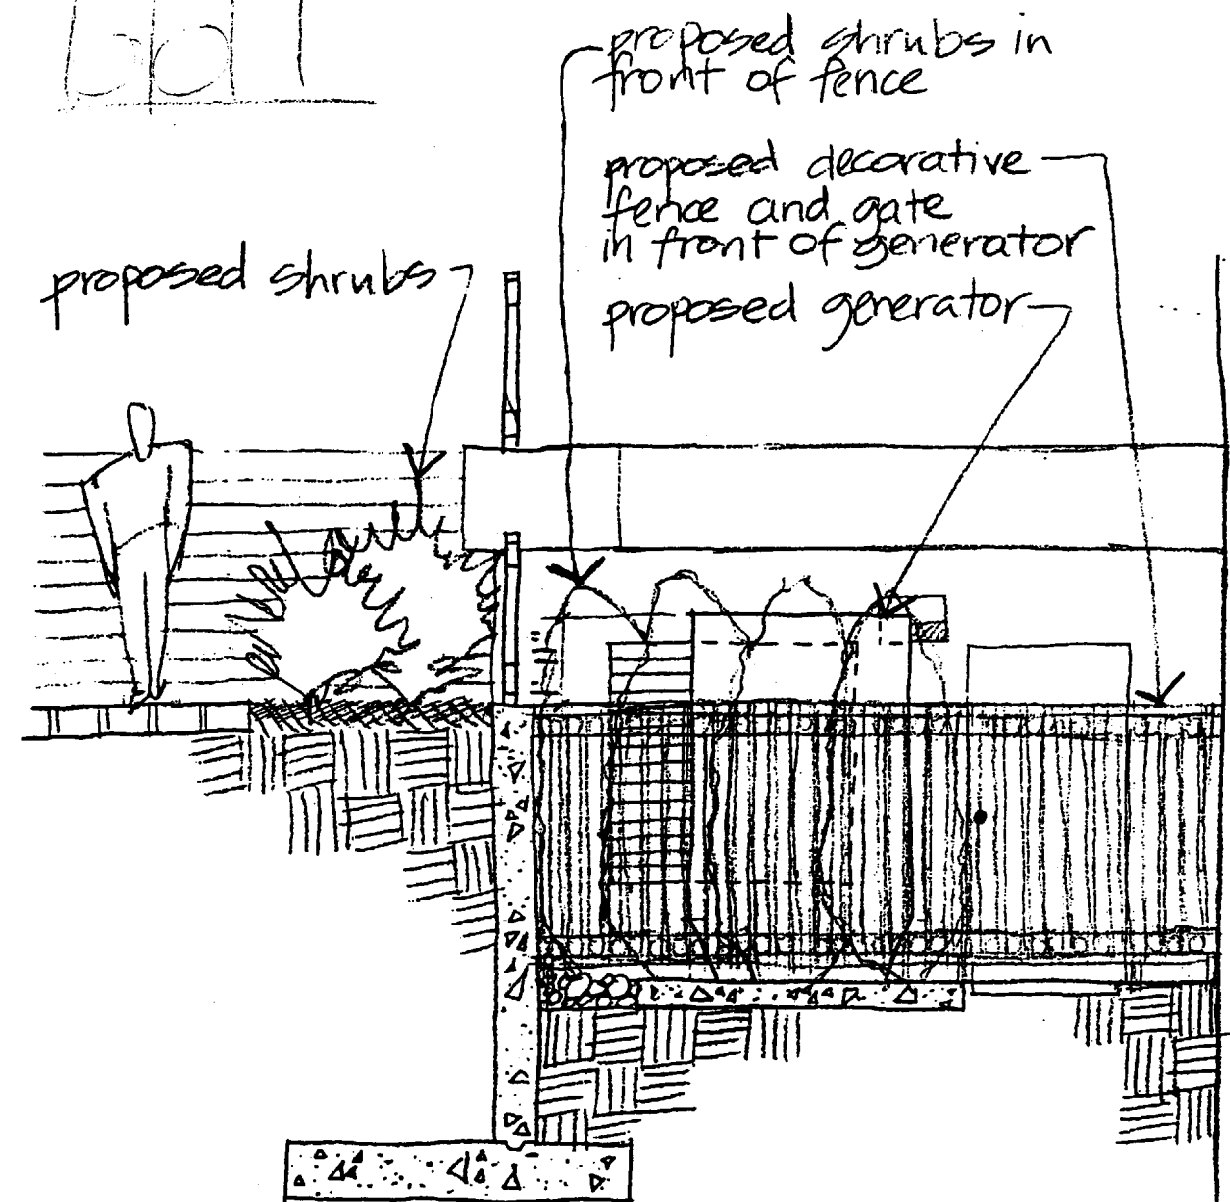 proposed shrubs in
front of fence
proposed decorative
fence and gate
in front of generator
proposed shrubs
proposed generator